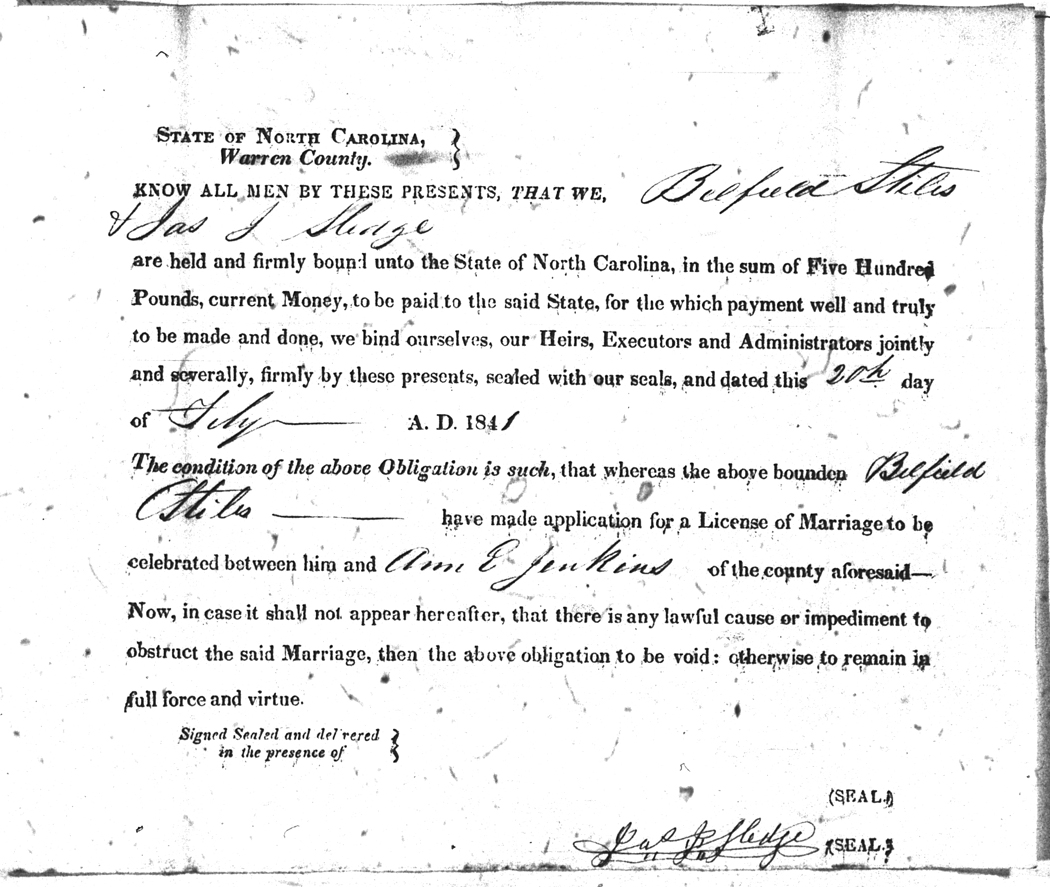 STATE OF NORTH CAROLINA,
Warren County.
KNOW ALL MEN BY THESE PRESENTS, THAT WE, Belfield Stiles
& Jas J Sledge
are held and firmly bound unto the State of North Carolina, in the sum of Five Hundred
Pounds, current Money, to be paid to the said State, for the which payment well and truly
to be made and done, we bind ourselves, our Heirs, Executors and Administrators jointly
and severally, firmly by these presents, sealed with our seals, and dated this 20th day
of July A. D. 1841
The condition of the above Obligation is such, that whereas the above bounden Belfield
Stiles have made application for a License of Marriage to be
celebrated between him and Ann E Jenkins of the county aforesaid—
Now, in case it shall not appear hereafter, that there is any lawful cause or impediment to
obstruct the said Marriage, then the above obligation to be void: otherwise to remain in
full force and virtue.
Signed Sealed and del'vered
in the presence of
(SEAL.)
Jas J Sledge (SEAL.)